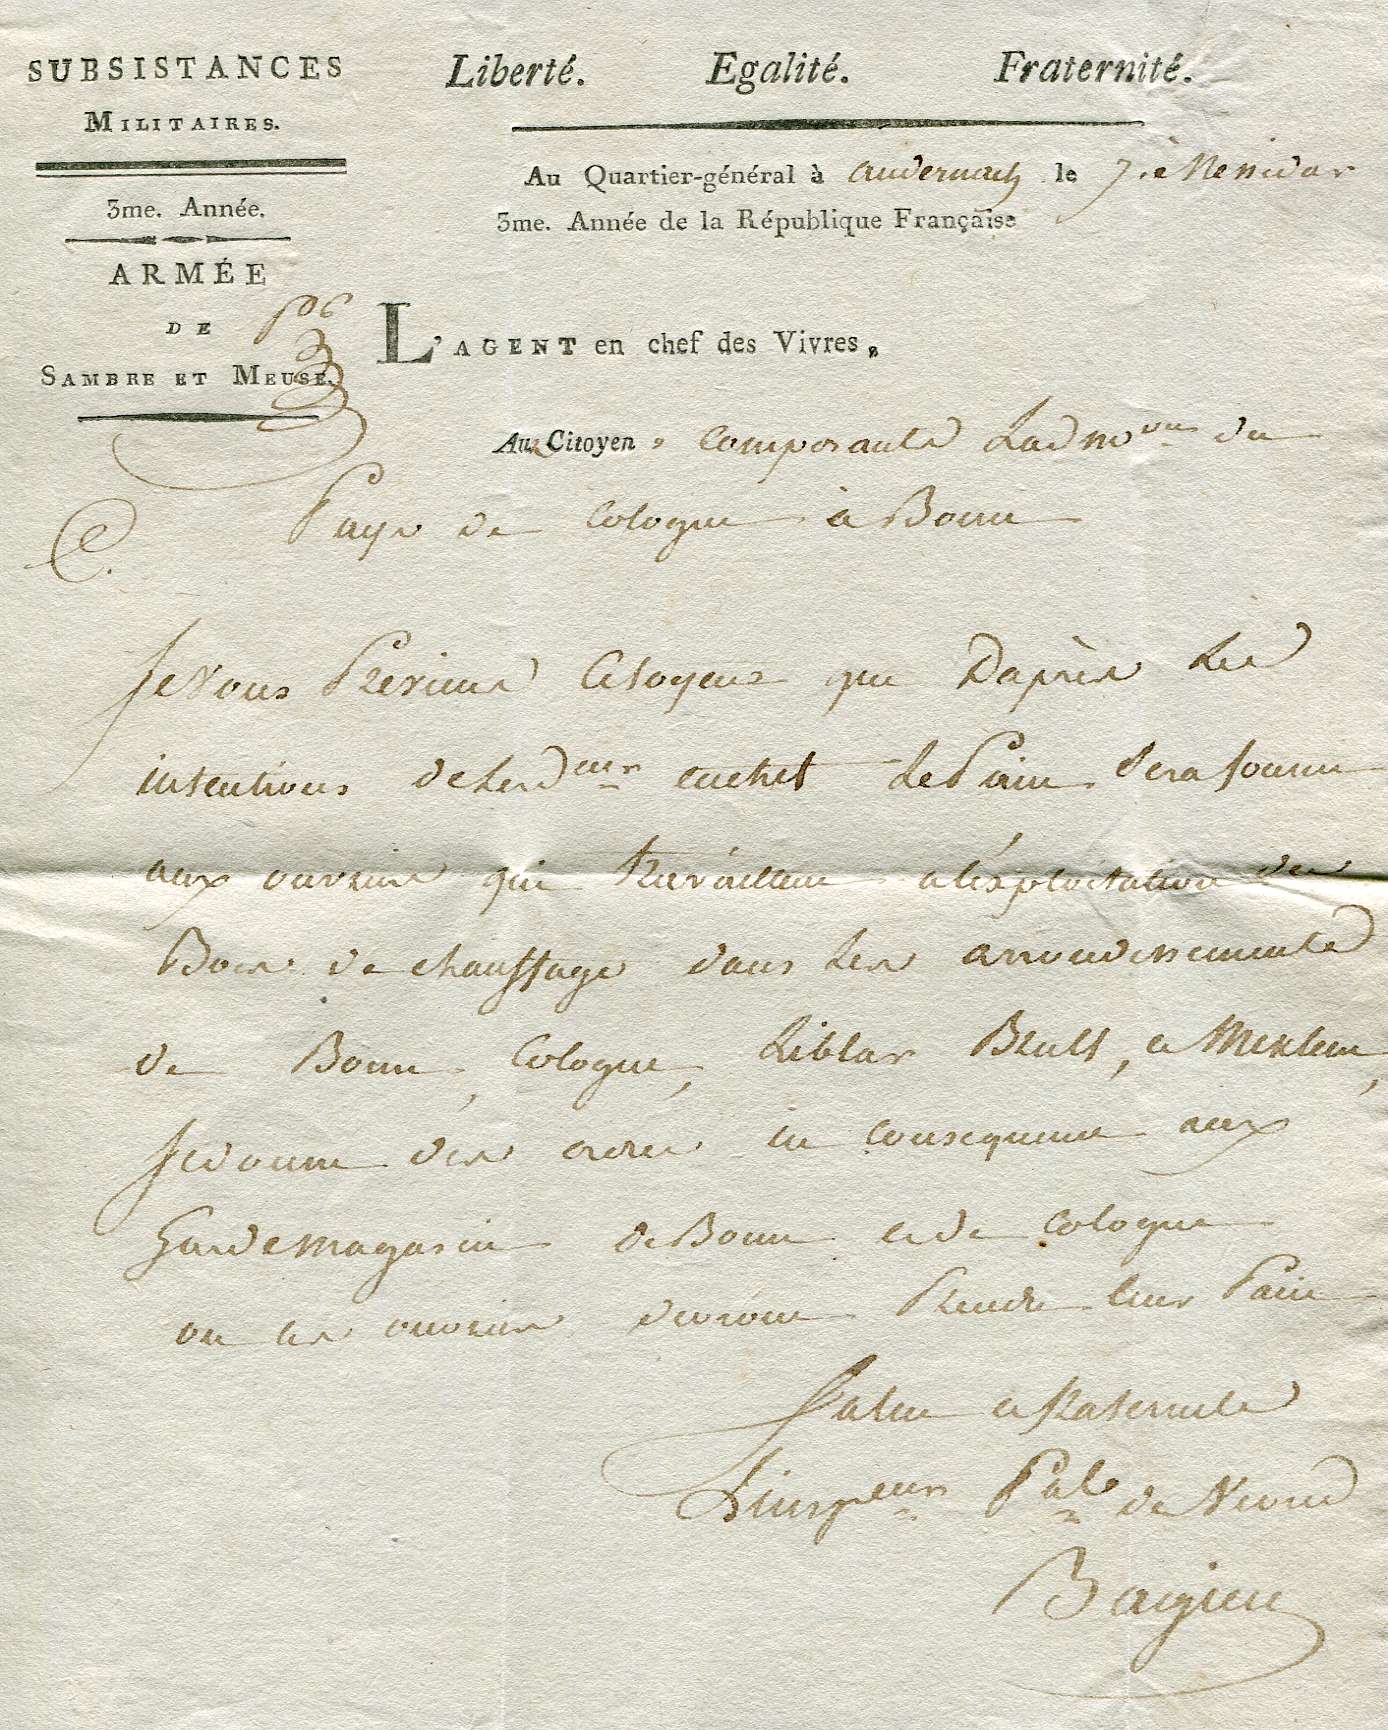 SUBSISTANCES
MILITAIRES.
3me. Année.
ARMÉE
DE
SAMBRE ET MEUSE.
Liberté. Egalité. Fraternité.
Au Quartier-général à andernach le 7.e Messidor
3me. Année de la République Française
L'AGENT en chef des Vivres,
Aux Citoyens composants Ladm.on du
Pays de Cologne à Bonn
Je vous Préviens Citoyens que Daprès Les
intentions de Le Pain Sera fourni
aux ouvriers qui travaillent a lexploitation des
Bois de chauffage dans Les arrondissements
de Bonn, Cologne, Liblar Brull, et Meklem,
Je donne des ordres en consequence aux
Gardemagasin de Bonn et de Cologne
ou les ouvriers devront Prendre leur Pain
Salut et fraternité
L'insp.eur P.al des Vivres